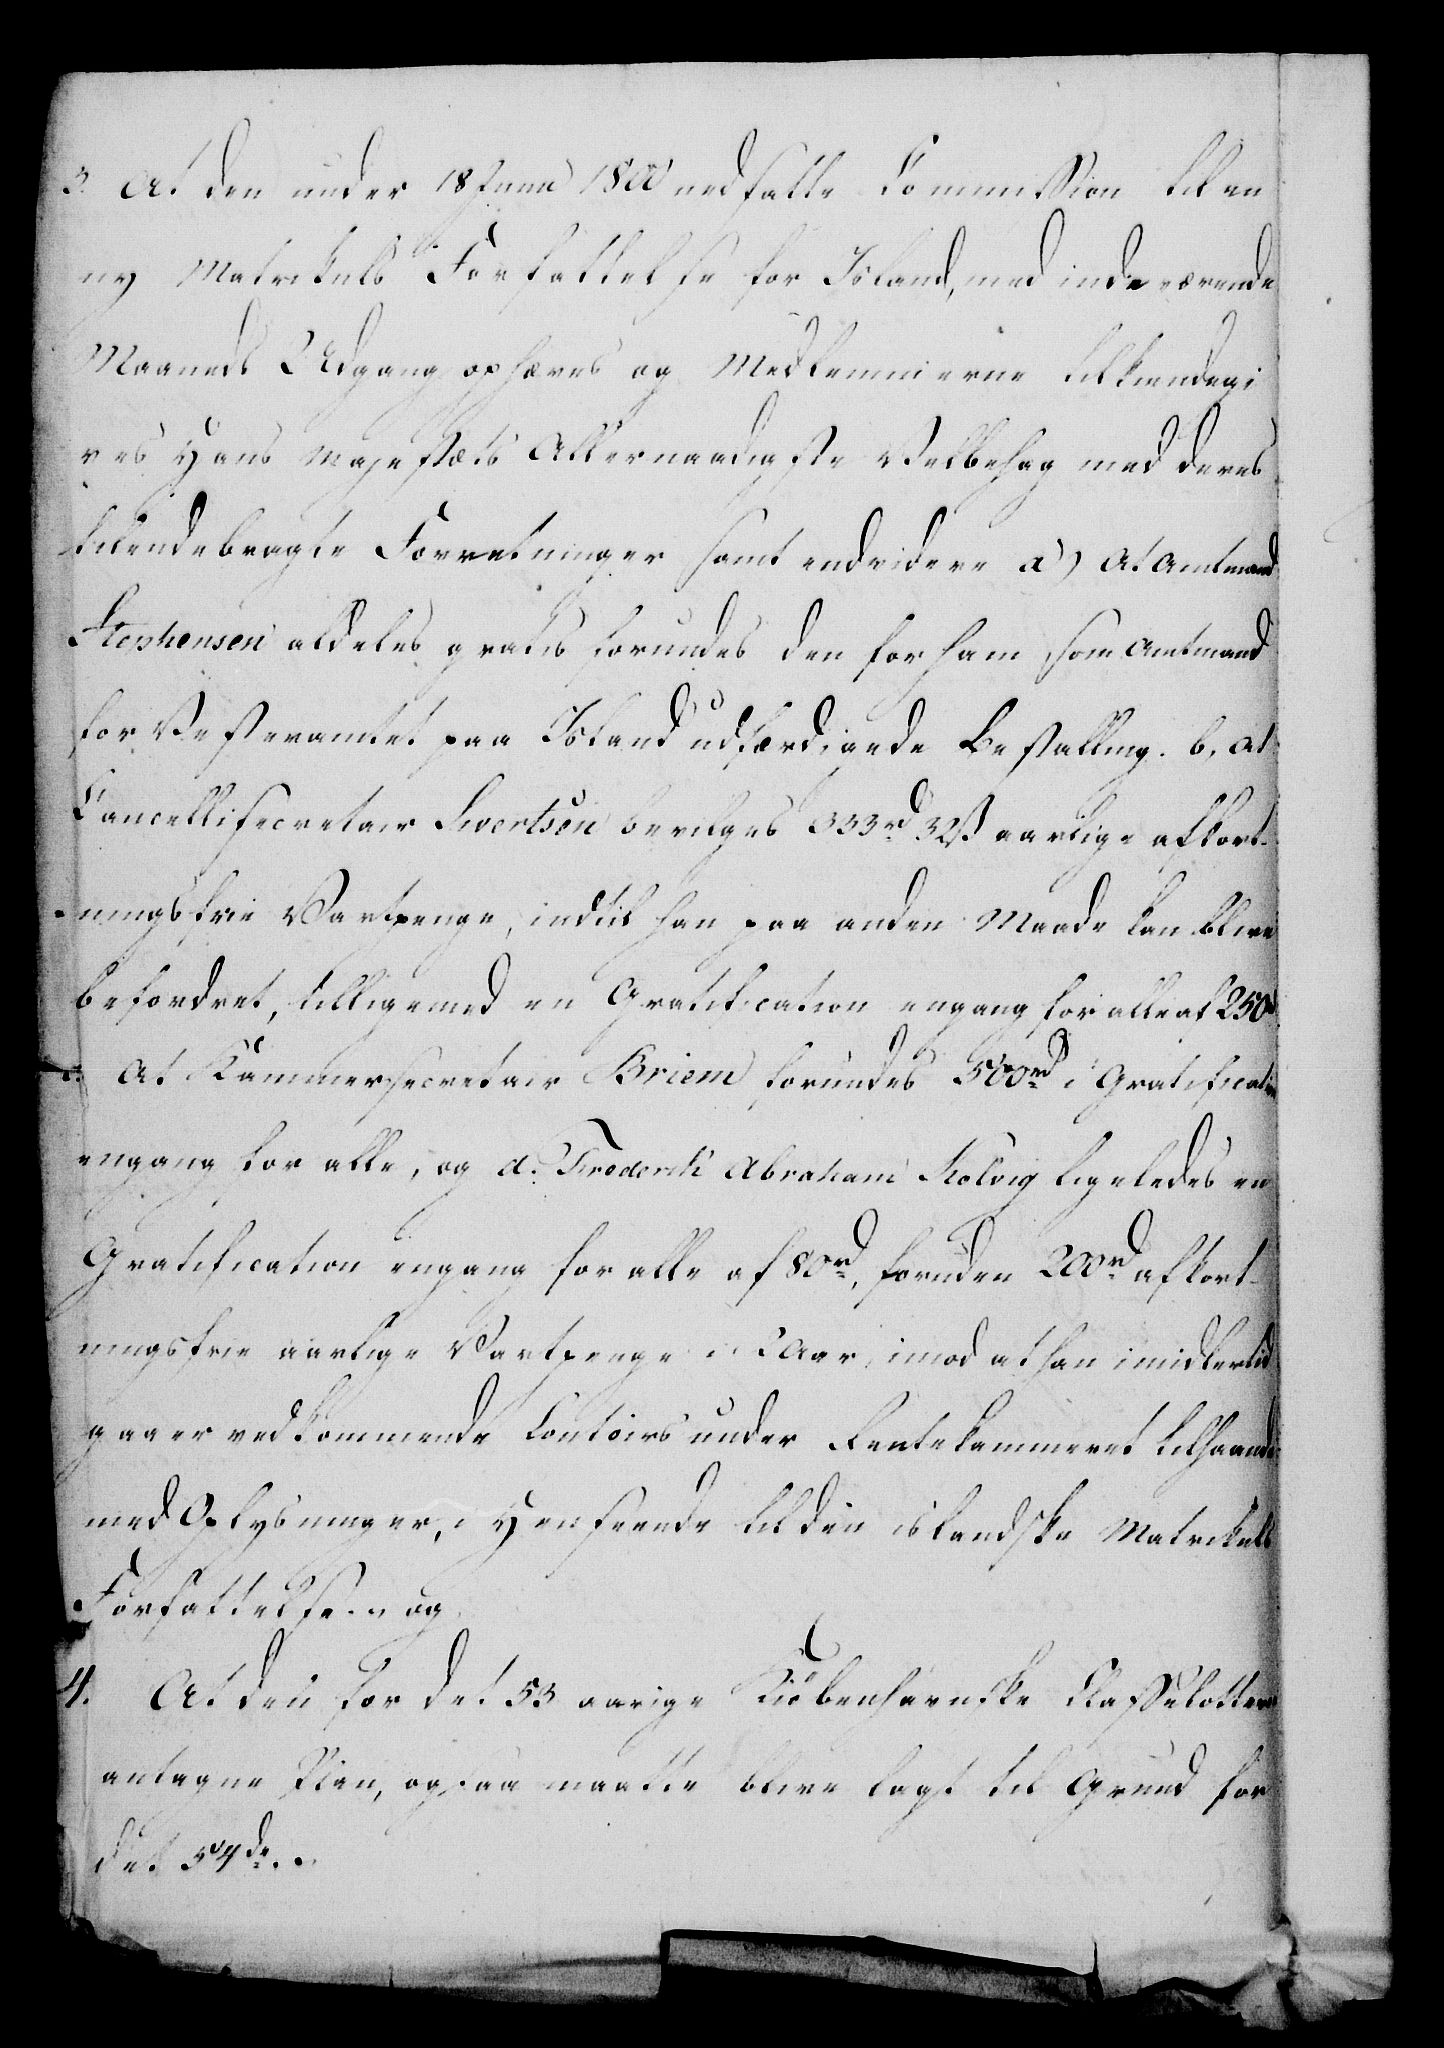 3. At den under 18 Junii 1800 nedsatte Commission til en
ny Matrikuls Forfattelse for Island, med indeværende
Maaneds Udgang ophæves og Medlemmerne tilkiendegi
ves Hans Majestæts Allernaadigste Velbehag med deres
tilendebragte Forretninger samt endvidere a) At Amtmand
Stephensen aldeles gratis forundes den for ham som Amtmand
for Vesteramtet paa Island udfærdigede Bestalling. b, at
Cancellisecretair Sivertsen bevilges 333rd 32ß aarlige afkort-
ningsfrie Vartpenge, indtil han paa anden Maade kan blive
befordret, tilligemed en Gratification engang for alle af 250rd
c. At Kammersecretair Briem forundes 500rd i Gratification
engang for alle, og d. Frederik Abraham Kolvig ligeledes en
Gratification engang for alle af 80rd, foruden 200rd afkort-
ningsfrie aarlige Vartpenge i 2 Aar, imod at han imidlertid
gaaer vedkommende Contoirs under Rentekammeret tilhaande
med Oplysninger, i Henseende til den islandske Matrikuls
Forfattelse. og
4. At den for det 53 aarige Kiöbenhavnske Classelotterie
antagne Plan, ogsaa maatte blive lagt til Grund for
det 54de.